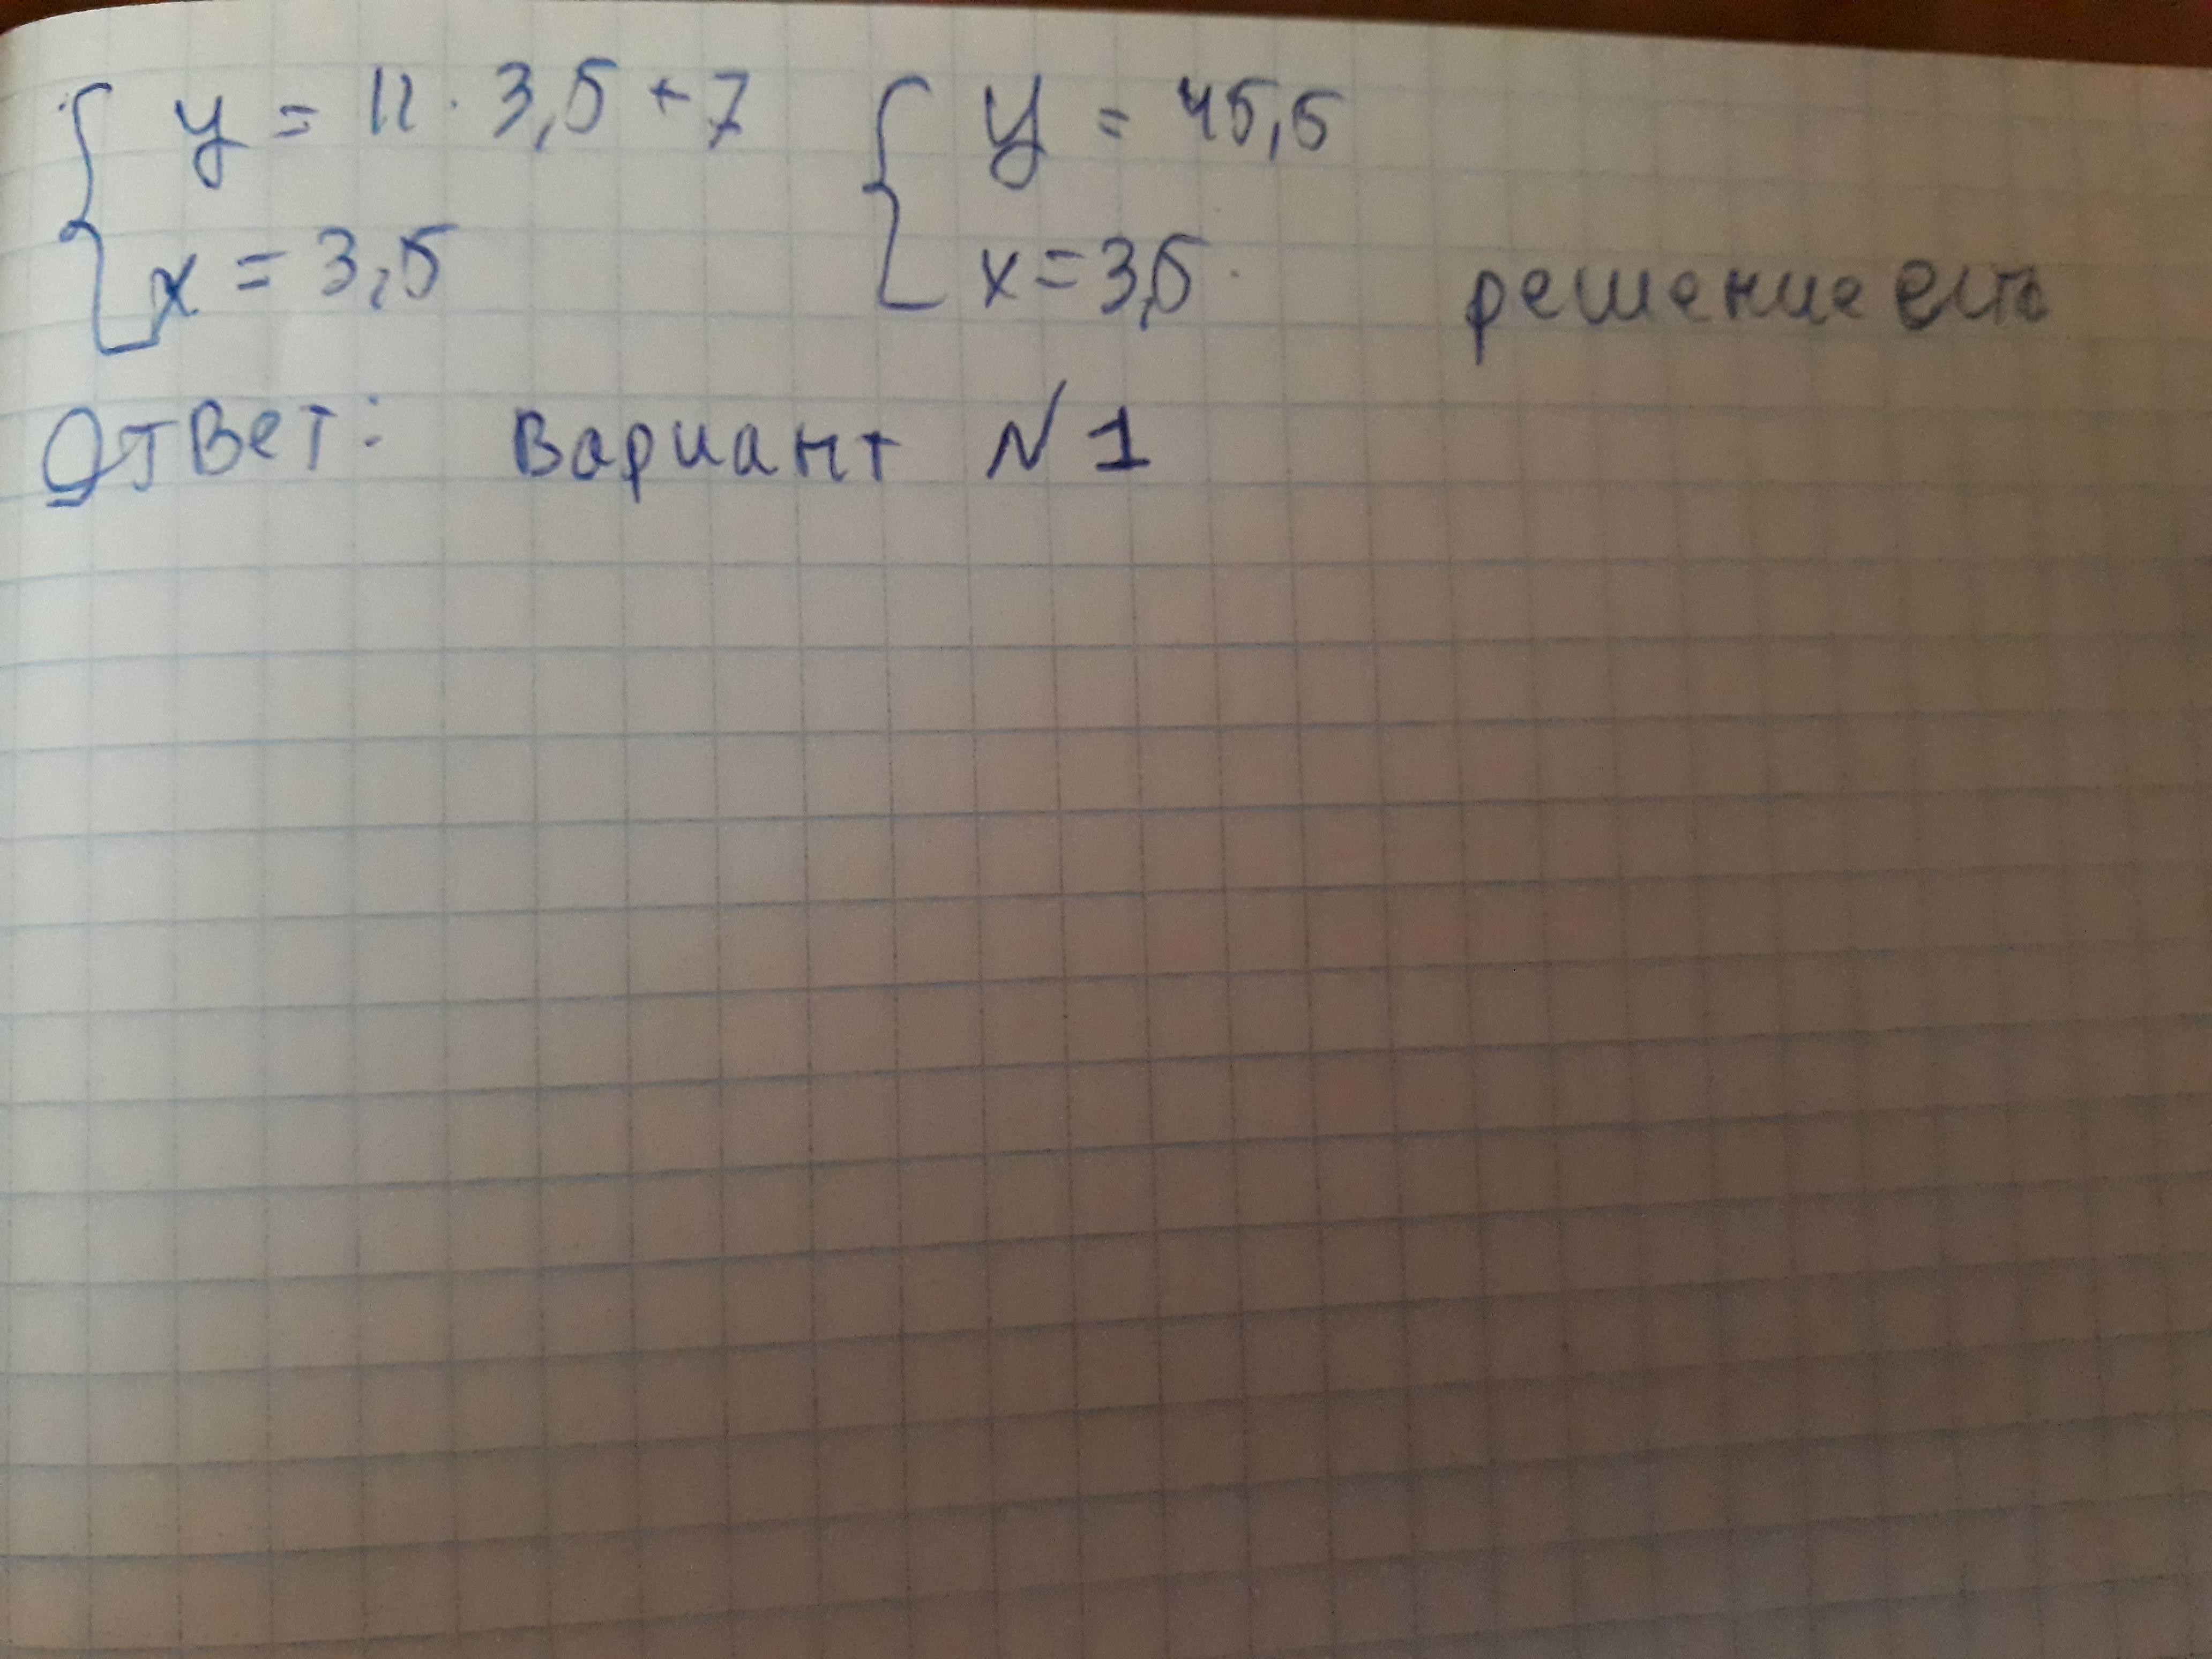 { y = 11 · 3,5 + 7 { y = 45,5
x = 3,5 x = 3,5 решение есть
Ответ: вариант №1